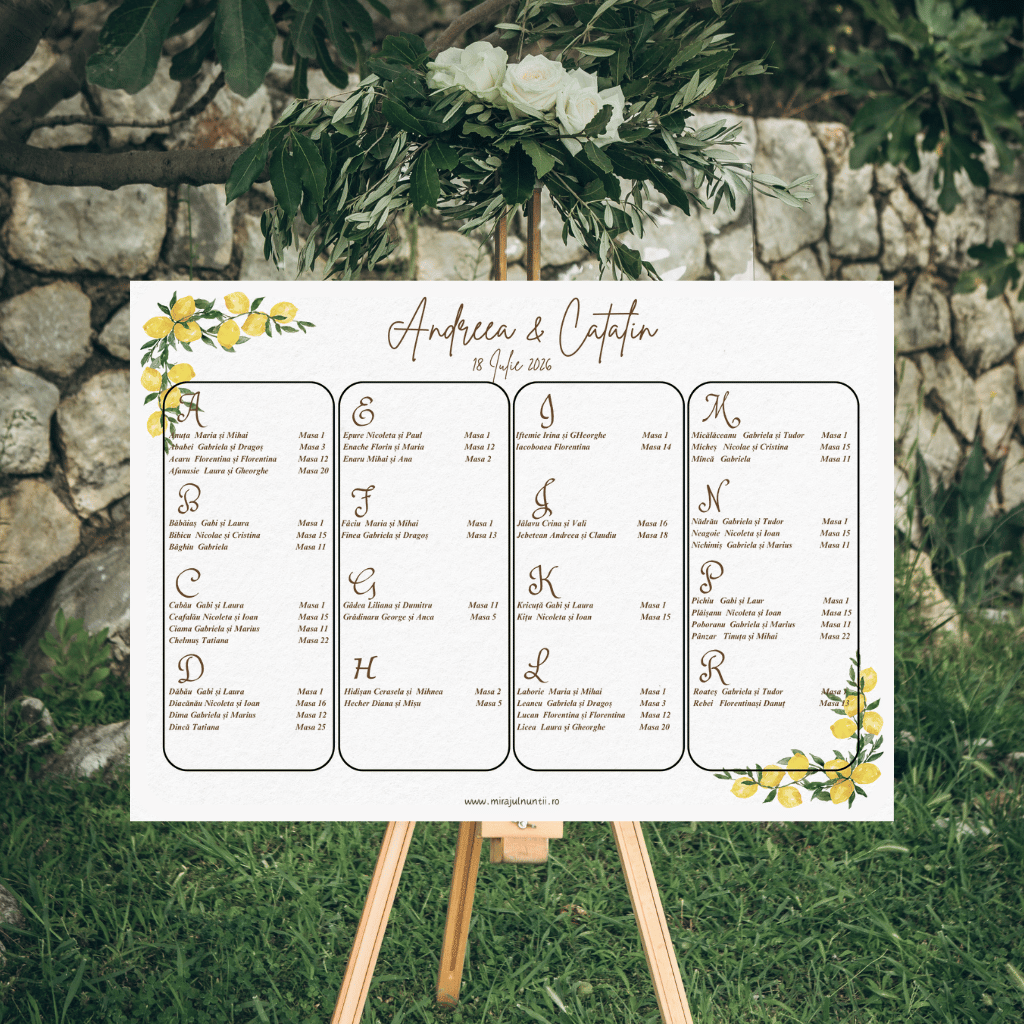 Andreea & Catalin
18 Julie 2026
A
Anuța Maria și Mihai Masa 1
Ababei Gabriela și Dragoș Masa 3
Acaru Florentina și Florentina Masa 12
Afanasie Laura și Gheorghe Masa 20
B
Băbăiaș Gabi și Laura Masa 1
Bibicu Nicolae și Cristina Masa 15
Băghiu Gabriela Masa 11
C
Cabău Gabi și Laura Masa 1
Ceafalău Nicoleta și Ioan Masa 15
Ciama Gabriela și Marius Masa 11
Chelmuș Tatiana Masa 22
D
Dăbău Gabi și Laura Masa 1
Diacănău Nicoleta și Ioan Masa 16
Dima Gabriela și Marius Masa 12
Dincă Tatiana Masa 25
E
Epure Nicoleta și Paul Masa 1
Enache Florin și Maria Masa 12
Enaru Mihai și Ana Masa 2
F
Făciu Maria și Mihai Masa 1
Finea Gabriela și Dragoș Masa 13
G
Gâdea Liliana și Dumitru Masa 11
Grădinaru George și Anca Masa 5
H
Hidișan Cerasela și Mihnea Masa 2
Hecher Diana și Mișu Masa 5
I
Iftemie Irina și GHeorghe Masa 1
Iacoboaea Florentina Masa 14
J
Jălavu Crina și Vali Masa 16
Jebetean Andreea și Claudiu Masa 18
K
Kricuță Gabi și Laura Masa 1
Kițu Nicoleta și Ioan Masa 15
L
Laborie Maria și Mihai Masa 1
Leancu Gabriela și Dragoș Masa 3
Lucan Florentina și Florentina Masa 12
Licea Laura și Gheorghe Masa 20
M
Micălăceanu Gabriela și Tudor Masa 1
Micheș Nicolae și Cristina Masa 15
Mîncă Gabriela Masa 11
N
Nădrău Gabriela și Tudor Masa 1
Neagoie Nicoleta și Ioan Masa 15
Nichimiș Gabriela și Marius Masa 11
P
Pichiu Gabi și Laur Masa 1
Plăișanu Nicoleta și Ioan Masa 15
Poboranu Gabriela și Marius Masa 11
Pânzar Tinuța și Mihai Masa 22
R
Roateș Gabriela și Tudor Masa 8
Rebei Florentinași Danuț Masa 13
www.mirajulnuntii.ro